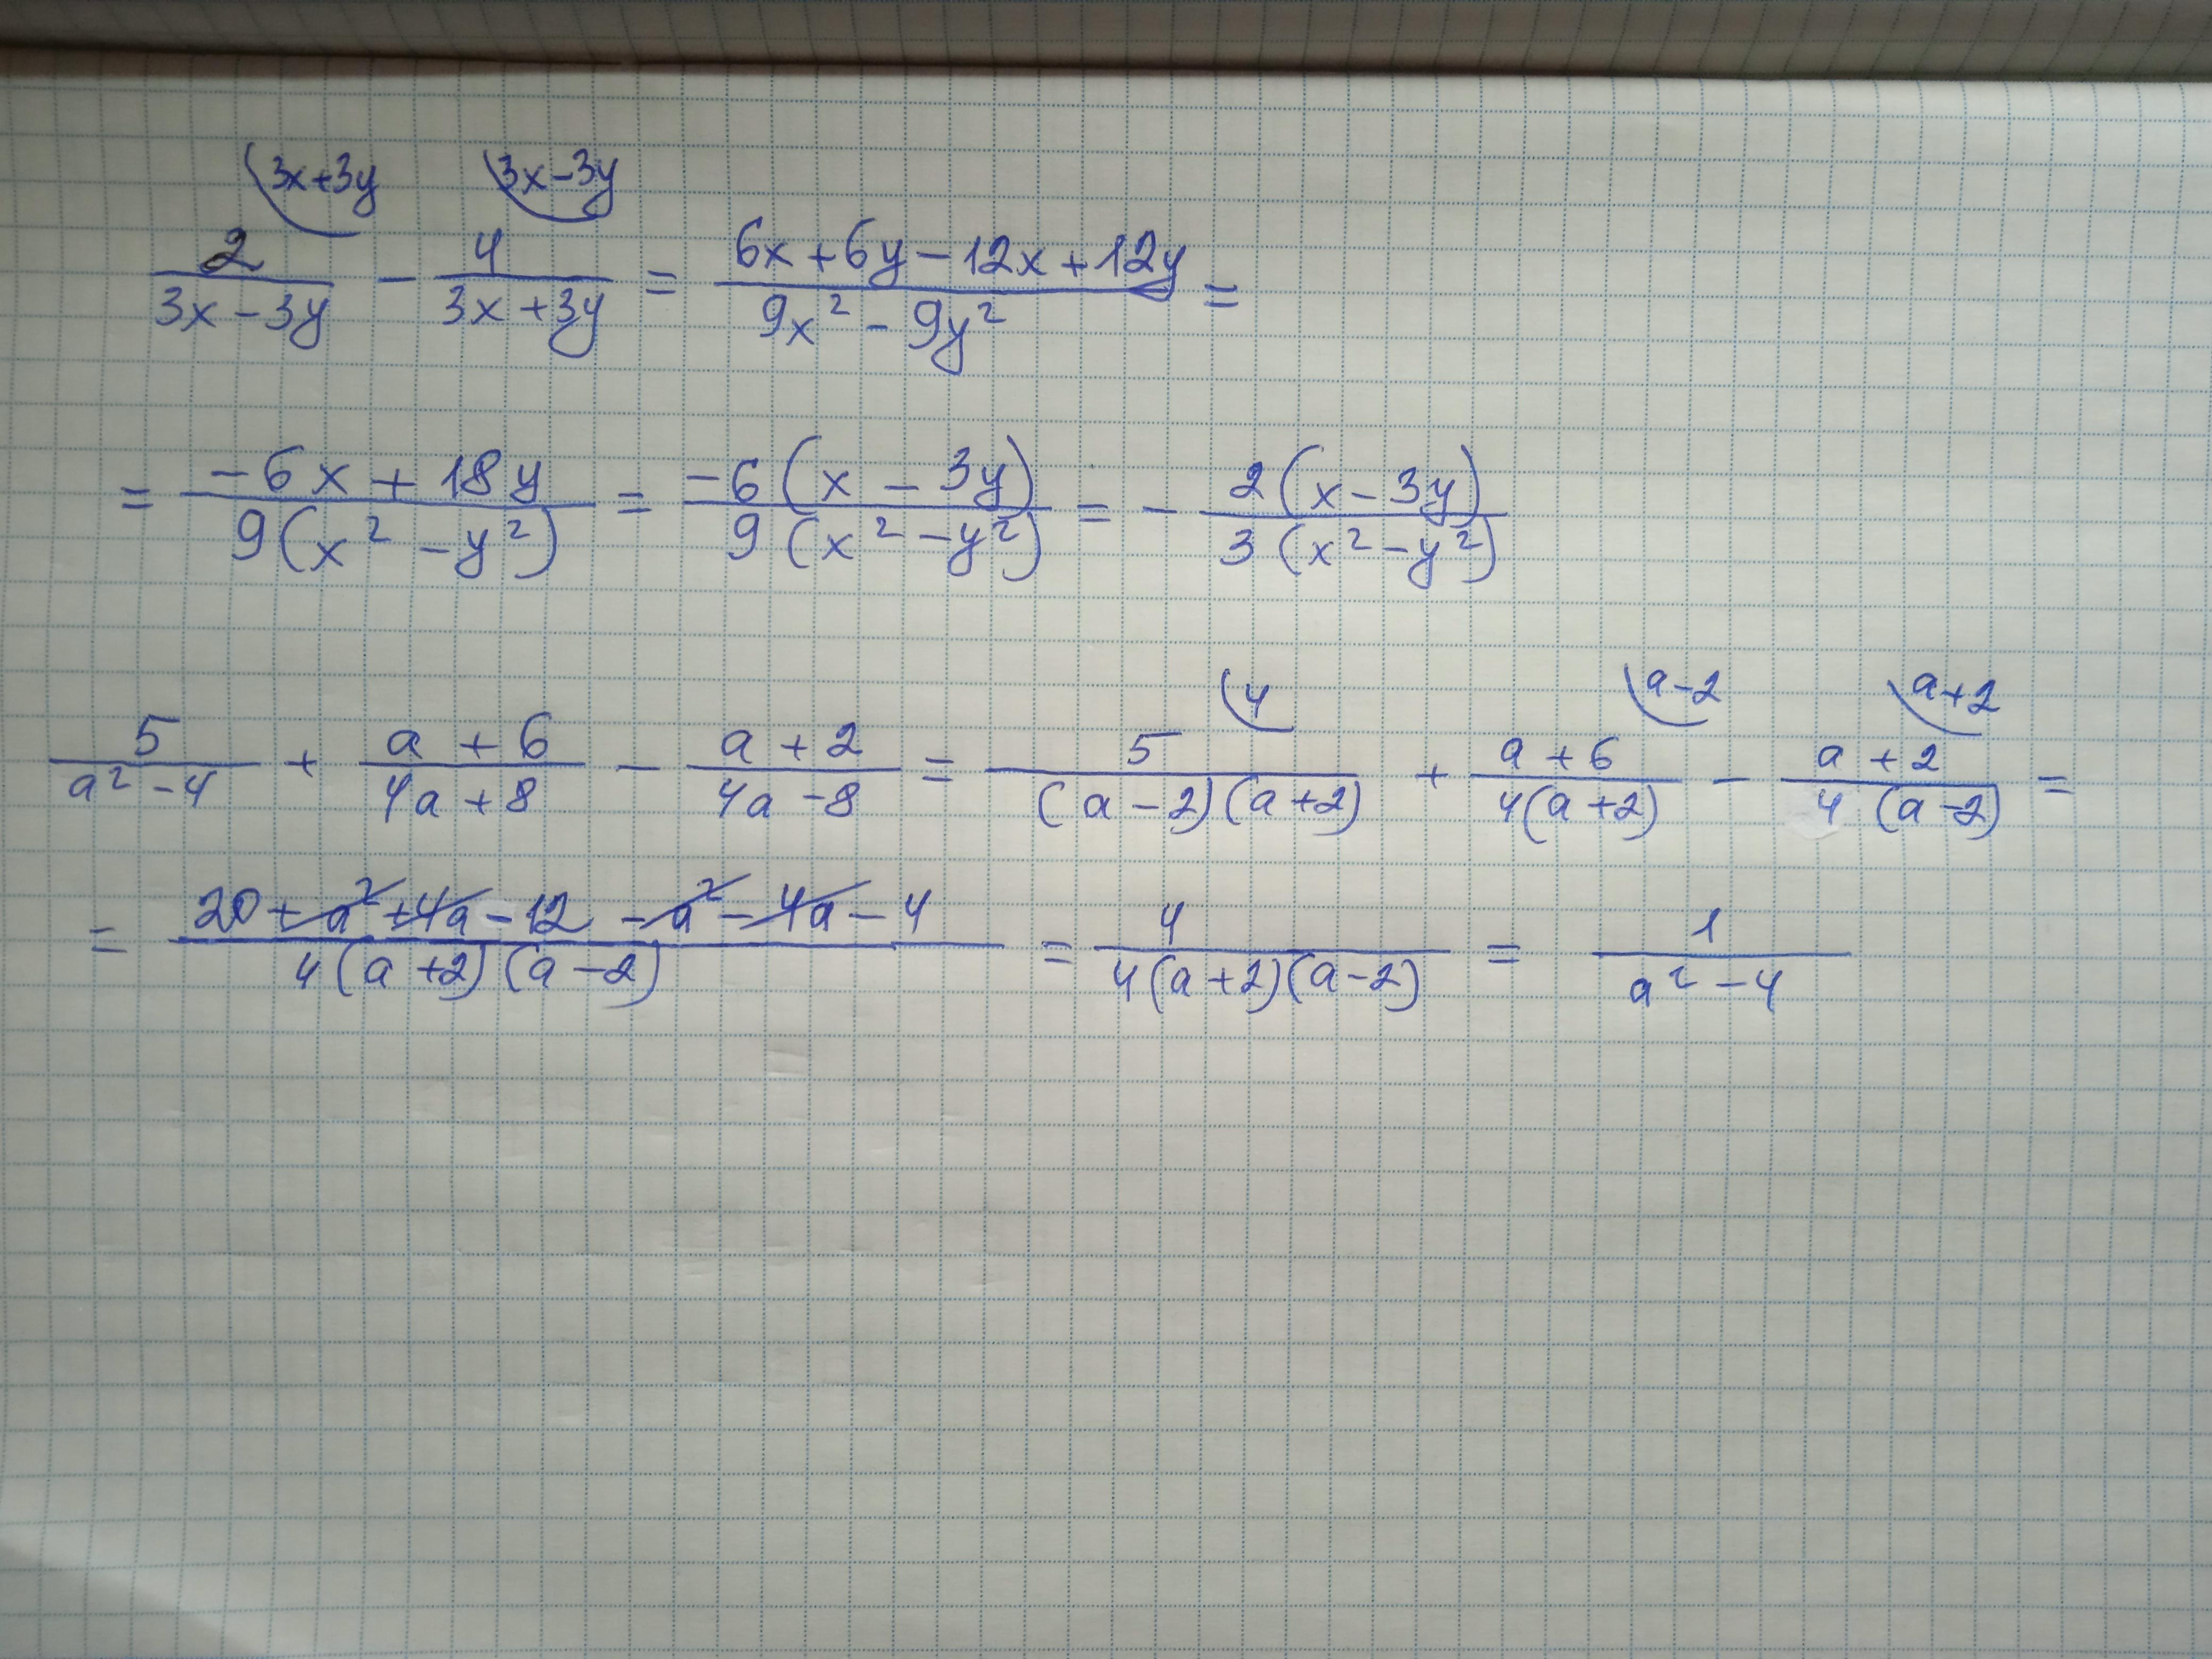 3x+3y 3x-3y
2/(3x-3y) - 4/(3x+3y) = (6x+6y-12x+12y)/(9x²-9y²) =
= (-6x+18y)/(9(x²-y²)) = (-6(x-3y))/(9(x²-y²)) = - (2(x-3y))/(3(x²-y²))
4 a-2 a+2
5/(a²-4) + (a+6)/(4a+8) - (a+2)/(4a-8) = 5/((a-2)(a+2)) + (a+6)/(4(a+2)) - (a+2)/(4(a-2)) =
= (20+a²+4a-12-a²-4a-4)/(4(a+2)(a-2)) = 4/(4(a+2)(a-2)) = 1/(a²-4)